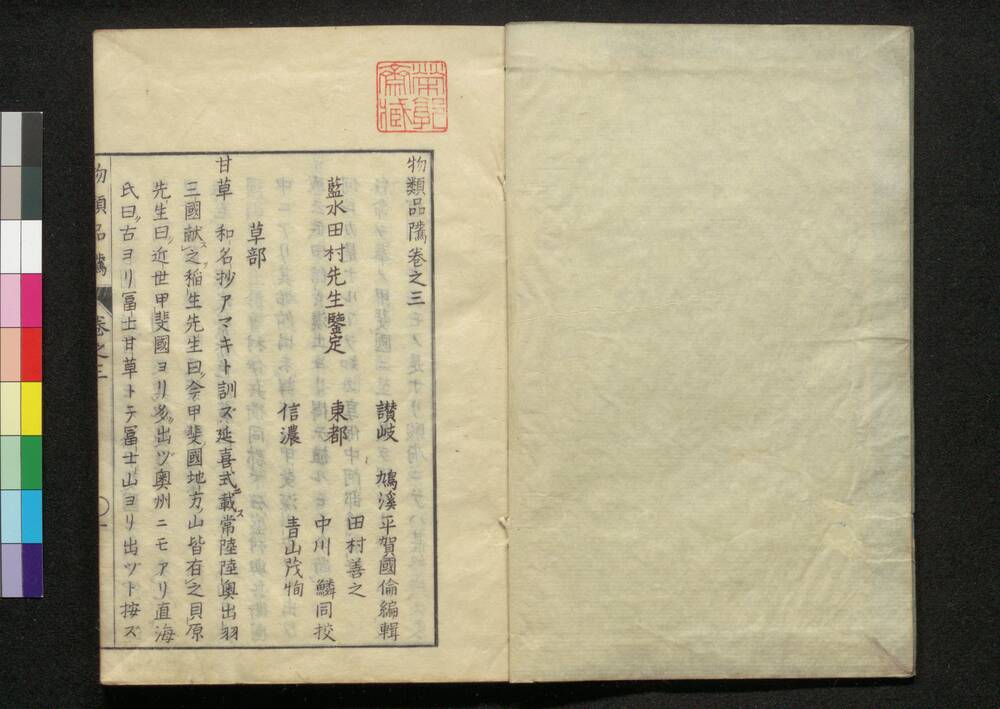 物類品隲卷之三
藍水田村先生鑒定
讃岐 鳩溪平賀國倫編輯
田村善之
東都 中川鱗同挍
信濃 青山茂恂
草部
甘草 和名抄アマキト訓ズ延喜式ニ載ス常陸陸奥出羽
三國献ス之ヲ稲生先生曰今甲斐國地方山皆有之貝原
先生曰近世甲斐國ヨリ多ク出ヅ奥州ニモアリ直海
氏曰古ヨリ冨士甘草トテ冨士山ヨリ出ヅト按ズ
物類品隲 卷之三 〇一